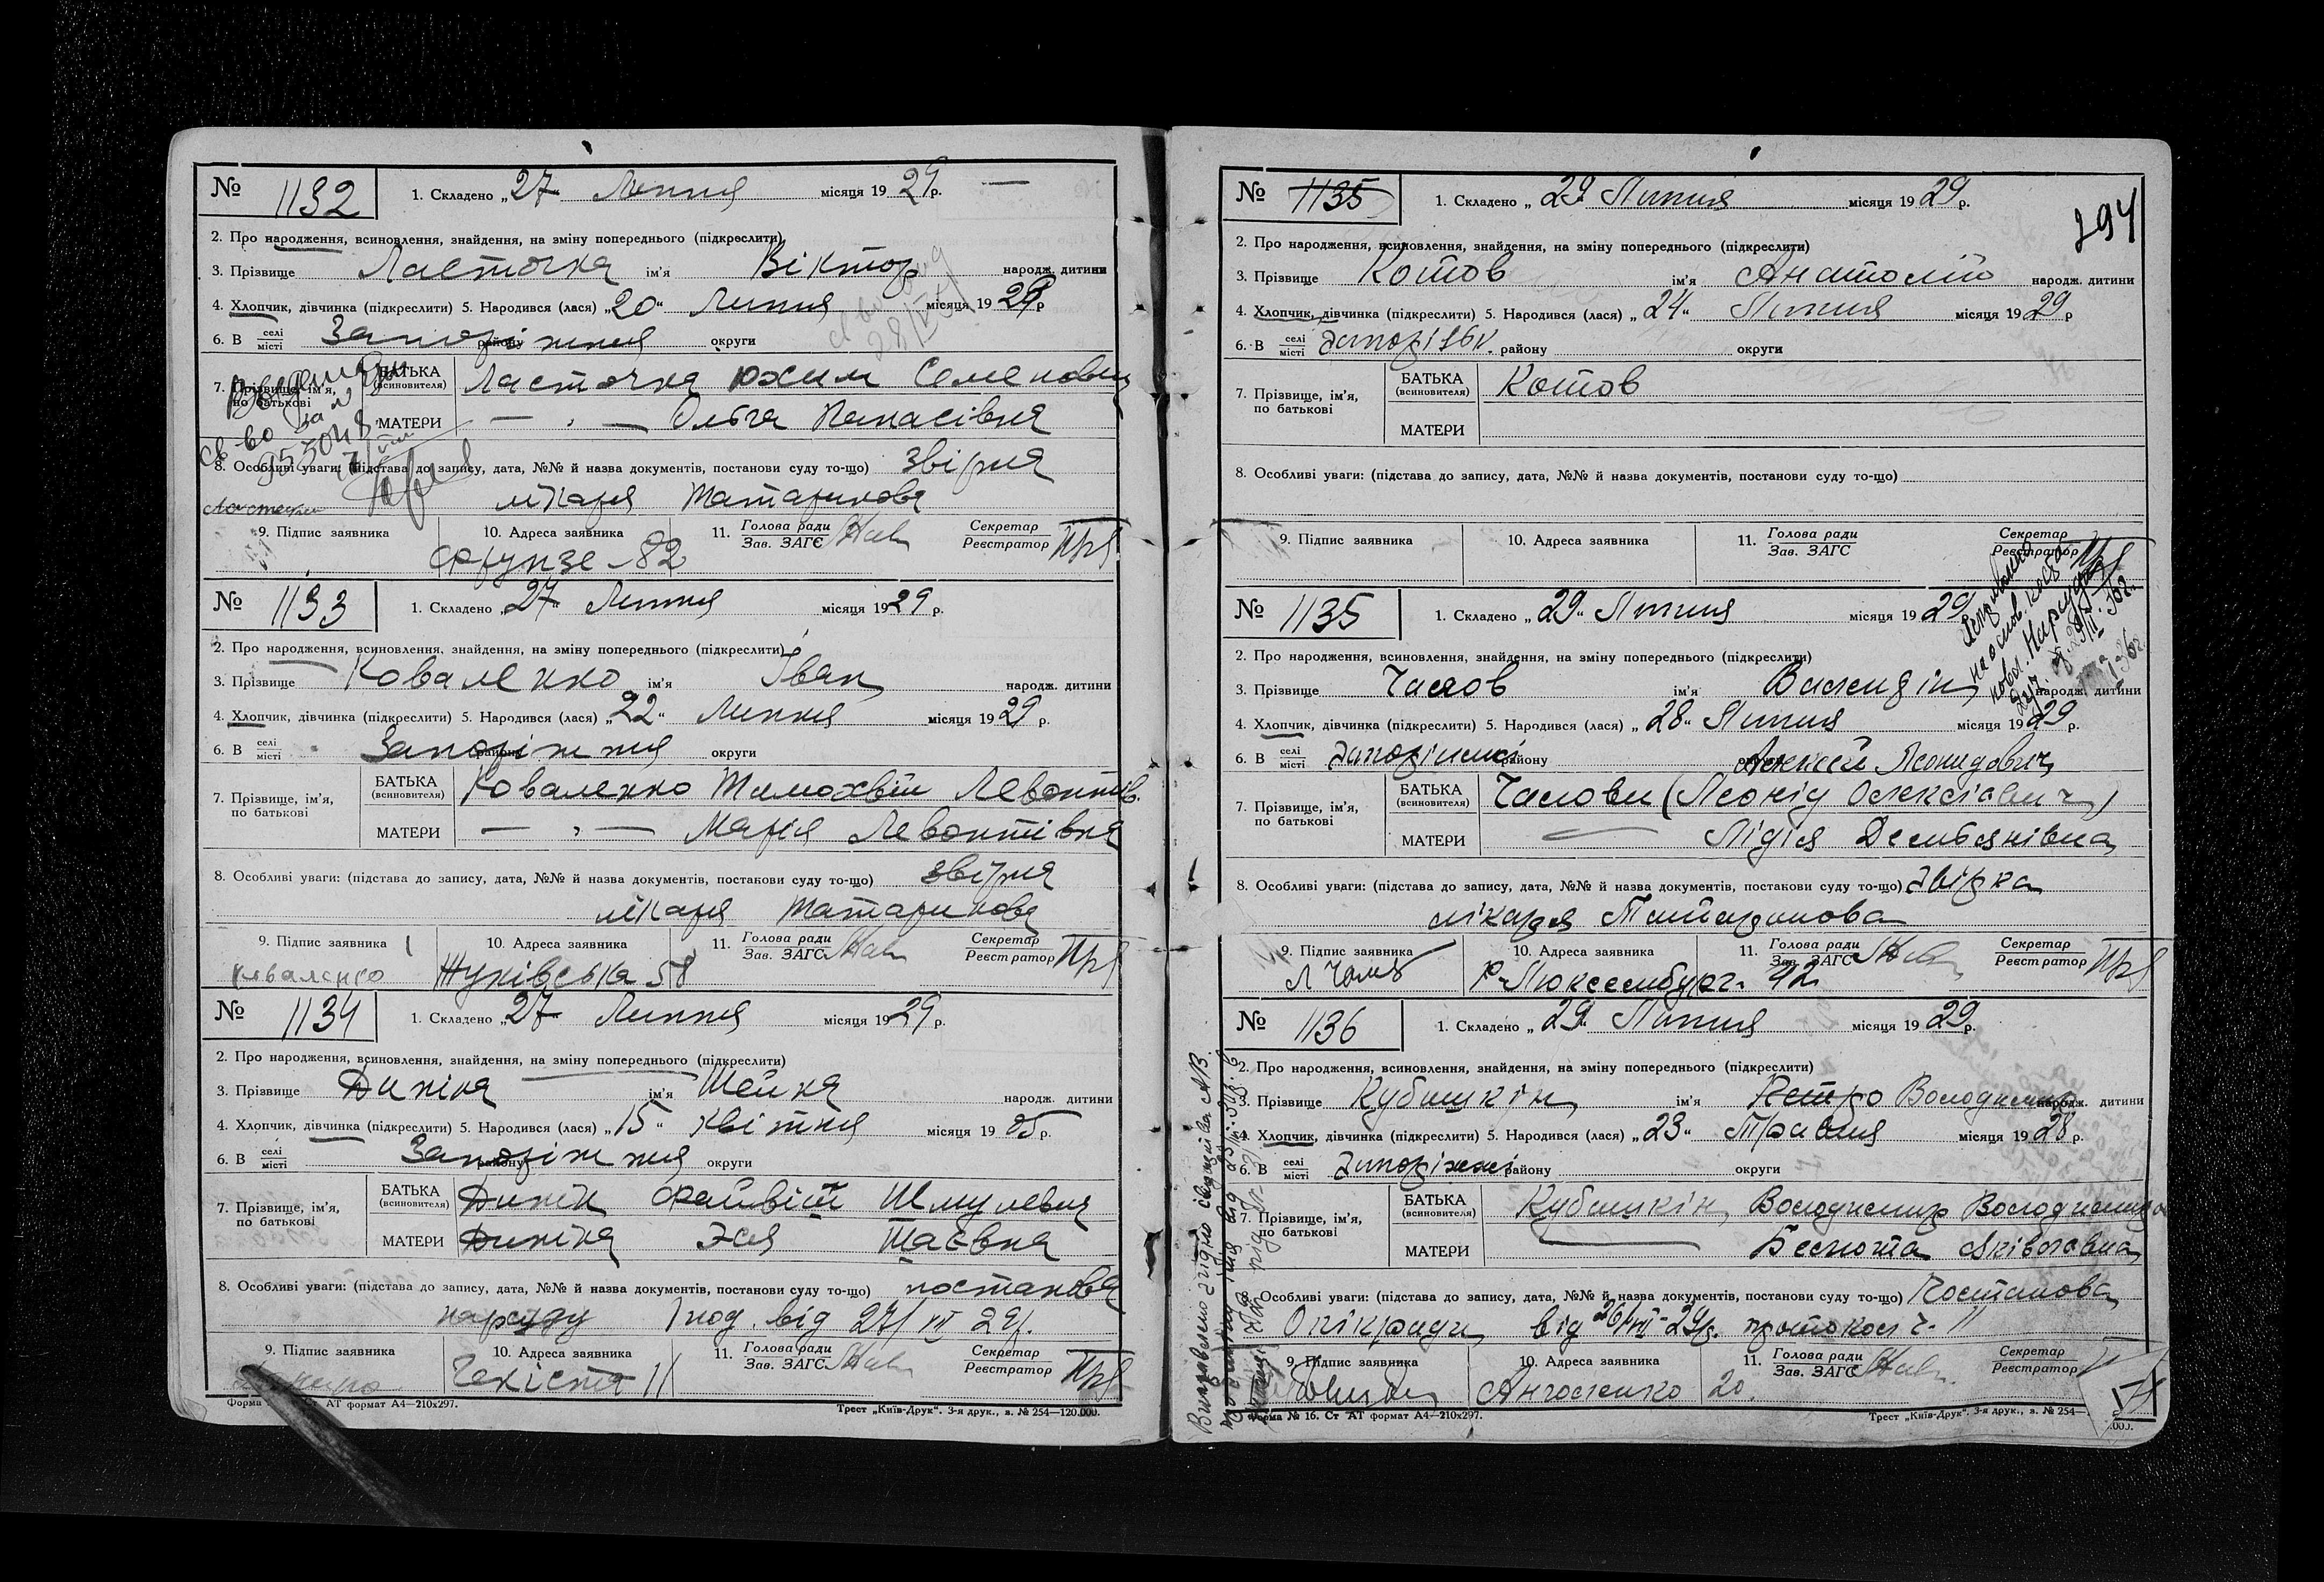 № 1132
1. Складено „27“ Липня місяця 1929 р. —
2. Про народження, всиновлення, знайдення, на зміну попереднього (підкреслити)
3. Прізвище Ласточка ім'я Віктор народж. дитини
4. Хлопчик, дівчинка (підкреслити) 5. Народився (лася) „20“ Липня місяця 1929 р
6. В селі місті Запоріжжя району округи
7. Прізвище, ім'я, по батькові
БАТЬКА (всиновителя) Ласточка Юхим Семенович
МАТЕРИ — „ — Ольга Панасівна
8. Особливі уваги: (підстава до запису, дата, №№ й назва документів, постанови суду то-що) звірка
лікаря Татаринова
9. Підпис заявника
10. Адреса заявника Фрунзе - 82
11. Голова ради Зав. ЗАГС
Секретар Реєстратор
№ 1133
1. Складено „27“ Липня місяця 1929 р.
2. Про народження, всиновлення, знайдення, на зміну попереднього (підкреслити)
3. Прізвище Коваленко ім'я Іван народж. дитини
4. Хлопчик, дівчинка (підкреслити) 5. Народився (лася) „22“ Липня місяця 1929 р.
6. В селі місті Запоріжжя району округи
7. Прізвище, ім'я, по батькові
БАТЬКА (всиновителя) Коваленко Тимохвій Левонтів.
МАТЕРИ — „ — Марія Левонтівна
8. Особливі уваги: (підстава до запису, дата, №№ й назва документів, постанови суду то-що) звірка
лікаря Татаринова
9. Підпис заявника Коваленко
10. Адреса заявника Жуківська 58
11. Голова ради Зав. ЗАГС
Секретар Реєстратор
№ 1134
1. Складено „27“ Липня місяця 1929 р.
2. Про народження, всиновлення, знайдення, на зміну попереднього (підкреслити)
3. Прізвище Диніна ім'я Шейна народж. дитини
4. Хлопчик, дівчинка (підкреслити) 5. Народився (лася) „15“ квітня місяця 1925 р.
6. В селі місті Запоріжжя району округи
7. Прізвище, ім'я, по батькові
БАТЬКА (всиновителя) Динін Файвіш Шмулевич
МАТЕРИ Диніна Эся
8. Особливі уваги: (підстава до запису, дата, №№ й назва документів, постанови суду то-що) постанова
нарсуду від 27/VII 29р.
9. Підпис заявника
10. Адреса заявника Чекістів 11
11. Голова ради Зав. ЗАГС
Секретар Реєстратор
Ст АТ формат А4—210х297.
Трест „Київ-Друк“. 3-я друк., з. № 254—120.000.
294
№ 1135
1. Складено „29“ Липня місяця 1929 р.
2. Про народження, всиновлення, знайдення, на зміну попереднього (підкреслити)
3. Прізвище Котов ім'я Анатолій народж. дитини
4. Хлопчик, дівчинка (підкреслити) 5. Народився (лася) „24“ Липня місяця 1929 р
6. В селі місті району округи
7. Прізвище, ім'я, по батькові
БАТЬКА (всиновителя) Котов
МАТЕРИ
8. Особливі уваги: (підстава до запису, дата, №№ й назва документів, постанови суду то-що)
9. Підпис заявника
10. Адреса заявника
11. Голова ради Зав. ЗАГС
Секретар Реєстратор
№ 1135
1. Складено „29“ Липня місяця 1929
2. Про народження, всиновлення, знайдення, на зміну попереднього (підкреслити)
3. Прізвище Чалов ім'я Валендін народж. дитини
4. Хлопчик, дівчинка (підкреслити) 5. Народився (лася) „28“ Липня місяця 1929 р.
6. В селі місті Запоріжжі району округи
Леонидович
7. Прізвище, ім'я, по батькові
БАТЬКА (всиновителя) Чалови (Леонід Олексієвич)
МАТЕРИ — Лідія Демьянівна
8. Особливі уваги: (підстава до запису, дата, №№ й назва документів, постанови суду то-що) звірка
лікаря Татаринова
9. Підпис заявника Л Чалов
10. Адреса заявника Р-Люксембург. 92
11. Голова ради Зав. ЗАГС
Секретар Реєстратор
№ 1136
1. Складено „29“ Липня місяця 1929 р.
2. Про народження, всиновлення, знайдення, на зміну попереднього (підкреслити)
3. Прізвище Кубишкін ім'я Петро Володимир народж. дитини
4. Хлопчик, дівчинка (підкреслити) 5. Народився (лася) „23“ Травня місяця 1928 р.
6. В селі місті Запоріжжі району округи
7. Прізвище, ім'я, по батькові
БАТЬКА (всиновителя) Кубишкін Володимир Володимиров
МАТЕРИ
8. Особливі уваги: (підстава до запису, дата, №№ й назва документів, постанови суду то-що) Постанова
Опікради від 26/VII-29р. протокол ч. 11
9. Підпис заявника
10. Адреса заявника 20
11. Голова ради Зав. ЗАГС
Секретар Реєстратор
Форма № 16. Ст АТ формат А4—210х297.
Трест „Київ-Друк“. 3-я друк., з. № 254—